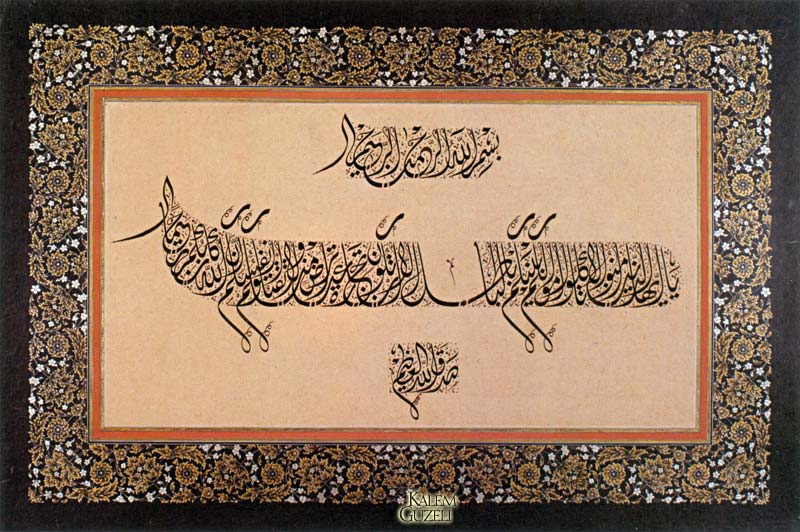 بسم الله الرحمن الرحيم
يا ايها الذين آمنوا لا تأكلوا اموالكم بينكم بالباطل الا ان تكون تجارة عن تراض منكم ولا تقتلوا انفسكم ان الله كان بكم رحيما
صدق الله العظيم
KALEM
GUZELI